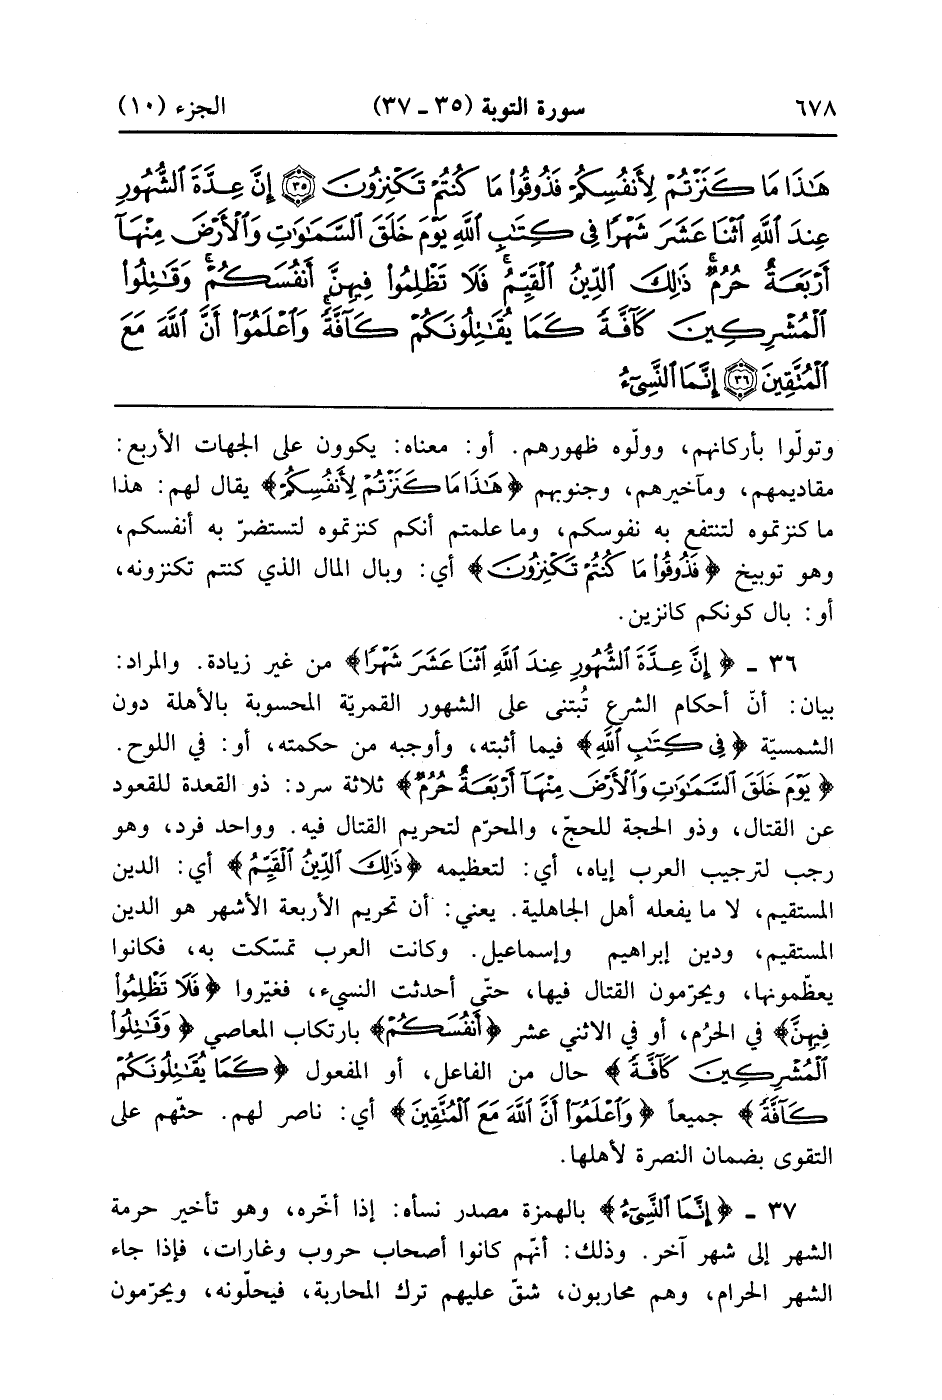 ٦٧٨ سورة التوبة (٣٥ ـ ٣٧) الجزء (١٠)
هَٰذَا مَا كَنَزْتُمْ لِأَنفُسِكُمْ فَذُوقُواْ مَا كُنتُمْ تَكْنِزُونَ ۝٣٥ إِنَّ عِدَّةَ ٱلشُّهُورِ
عِندَ ٱللَّهِ ٱثْنَا عَشَرَ شَهْرًا فِي كِتَٰبِ ٱللَّهِ يَوْمَ خَلَقَ ٱلسَّمَٰوَٰتِ وَٱلْأَرْضَ مِنْهَآ
أَرْبَعَةٌ حُرُمٌ ۚ ذَٰلِكَ ٱلدِّينُ ٱلْقَيِّمُ ۚ فَلَا تَظْلِمُواْ فِيهِنَّ أَنفُسَكُمْ ۚ وَقَٰتِلُواْ
ٱلْمُشْرِكِينَ كَآفَّةً كَمَا يُقَٰتِلُونَكُمْ كَآفَّةً ۚ وَٱعْلَمُوٓاْ أَنَّ ٱللَّهَ مَعَ
ٱلْمُتَّقِينَ ۝٣٦ إِنَّمَا ٱلنَّسِىٓءُ
وتولّوا بأركانهم، وولّوه ظهورهم. أو: معناه: يكوون على الجهات الأربع:
مقاديمهم، ومآخيرهم، وجنوبهم ﴿هَٰذَا مَا كَنَزْتُمْ لِأَنفُسِكُمْ﴾ يقال لهم: هذا
ما كنزتموه لتنتفع به نفوسكم، وما علمتم أنكم كنزتموه لتستضرّ به أنفسكم،
وهو توبيخ ﴿فَذُوقُواْ مَا كُنتُمْ تَكْنِزُونَ﴾ أي: وبال المال الذي كنتم تكنزونه،
أو: بال كونكم كانزين.
٣٦ ـ ﴿إِنَّ عِدَّةَ ٱلشُّهُورِ عِندَ ٱللَّهِ ٱثْنَا عَشَرَ شَهْرًا﴾ من غير زيادة. والمراد:
بيان: أنّ أحكام الشرع تُبتنى على الشهور القمريّة المحسوبة بالأهلة دون
الشمسيّة ﴿فِي كِتَٰبِ ٱللَّهِ﴾ فيما أثبته، وأوجبه من حكمته، أو: في اللوح.
﴿يَوْمَ خَلَقَ ٱلسَّمَٰوَٰتِ وَٱلْأَرْضَ مِنْهَآ أَرْبَعَةٌ حُرُمٌ﴾ ثلاثة سرد: ذو القعدة للقعود
عن القتال، وذو الحجة للحجّ، والمحرّم لتحريم القتال فيه. وواحد فرد، وهو
رجب لترجيب العرب إياه، أي: لتعظيمه ﴿ذَٰلِكَ ٱلدِّينُ ٱلْقَيِّمُ﴾ أي: الدين
المستقيم، لا ما يفعله أهل الجاهلية. يعني: أن تحريم الأربعة الأشهر هو الدين
المستقيم، ودين إبراهيم وإسماعيل. وكانت العرب تمسّكت به، فكانوا
يعظّمونها، ويحرّمون القتال فيها، حتّى أحدثت النسيء، فغيّروا ﴿فَلَا تَظْلِمُواْ
فِيهِنَّ﴾ في الحرُم، أو في الاثني عشر ﴿أَنفُسَكُمْ﴾ بارتكاب المعاصي ﴿وَقَٰتِلُواْ
ٱلْمُشْرِكِينَ كَآفَّةً﴾ حال من الفاعل، أو المفعول ﴿كَمَا يُقَٰتِلُونَكُمْ
كَآفَّةً﴾ جميعاً ﴿وَٱعْلَمُوٓاْ أَنَّ ٱللَّهَ مَعَ ٱلْمُتَّقِينَ﴾ أي: ناصر لهم. حثّهم على
التقوى بضمان النصرة لأهلها.
٣٧ ـ ﴿إِنَّمَا ٱلنَّسِىٓءُ﴾ بالهمزة مصدر نسأه: إذا أخّره، وهو تأخير حرمة
الشهر إلى شهر آخر. وذلك: أنهّم كانوا أصحاب حروب وغارات، فإذا جاء
الشهر الحرام، وهم محاربون، شقّ عليهم ترك المحاربة، فيحلّونه، ويحرّمون